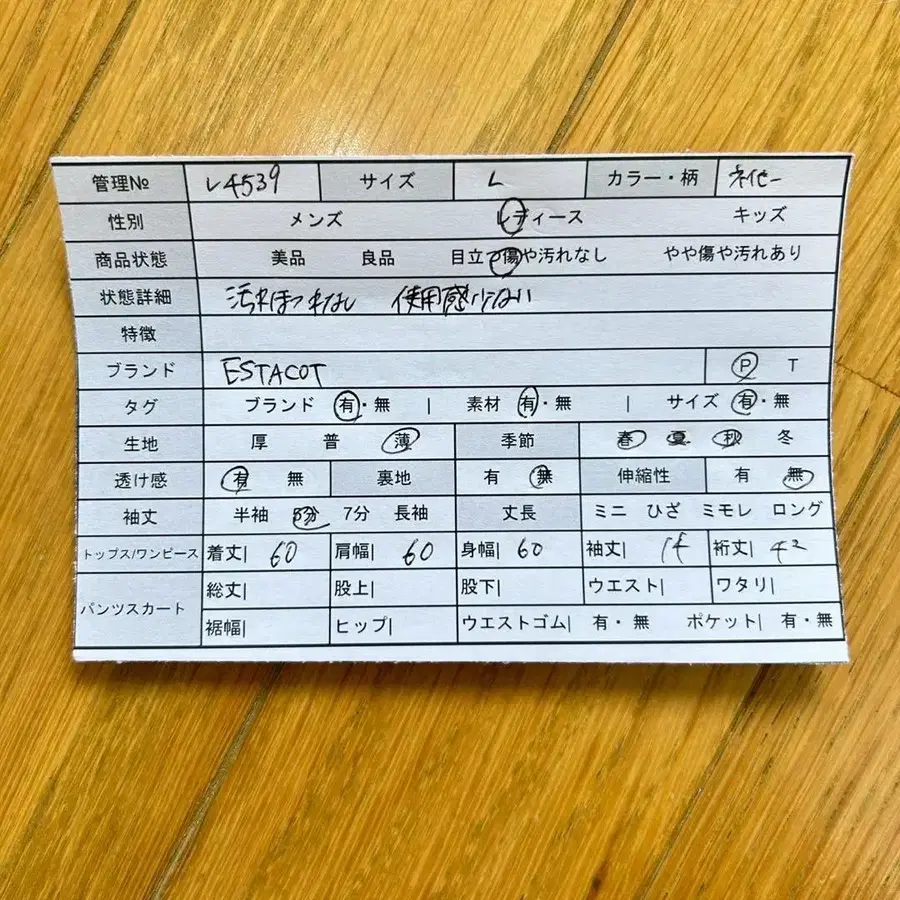 管理№ レ4539 サイズ L カラー・柄 ネイビー
性別 メンズ レディース キッズ
商品状態 美品 良品 目立つ傷や汚れなし やや傷や汚れあり
状態詳細 汚れほつれなし 使用感少ない
特徴
ブランド ESTACOT P T
タグ ブランド 有・無 | 素材 有・無 | サイズ 有・無
生地 厚 普 薄 季節 春 夏 秋 冬
透け感 有 無 裏地 有 無 伸縮性 有 無
袖丈 半袖 5分 7分 長袖 丈長 ミニ ひざ ミモレ ロング
トップス/ワンピース 着丈| 60 肩幅| 60 身幅| 60 袖丈| 14 裄丈| 42
パンツスカート 総丈| 股上| 股下| ウエスト| ワタリ|
裾幅| ヒップ| ウエストゴム| 有・無 ポケット| 有・無